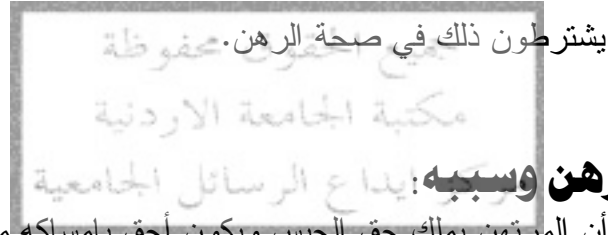 يشترطون ذلك في صحة الرهن.
جميع الحقوق محفوظة
مكتبة الجامعة الاردنية
مركز ايداع الرسائل الجامعية
رهن وسببه:
أن المرتهن يملك حق الحبس ويكون أحق بإمساكه